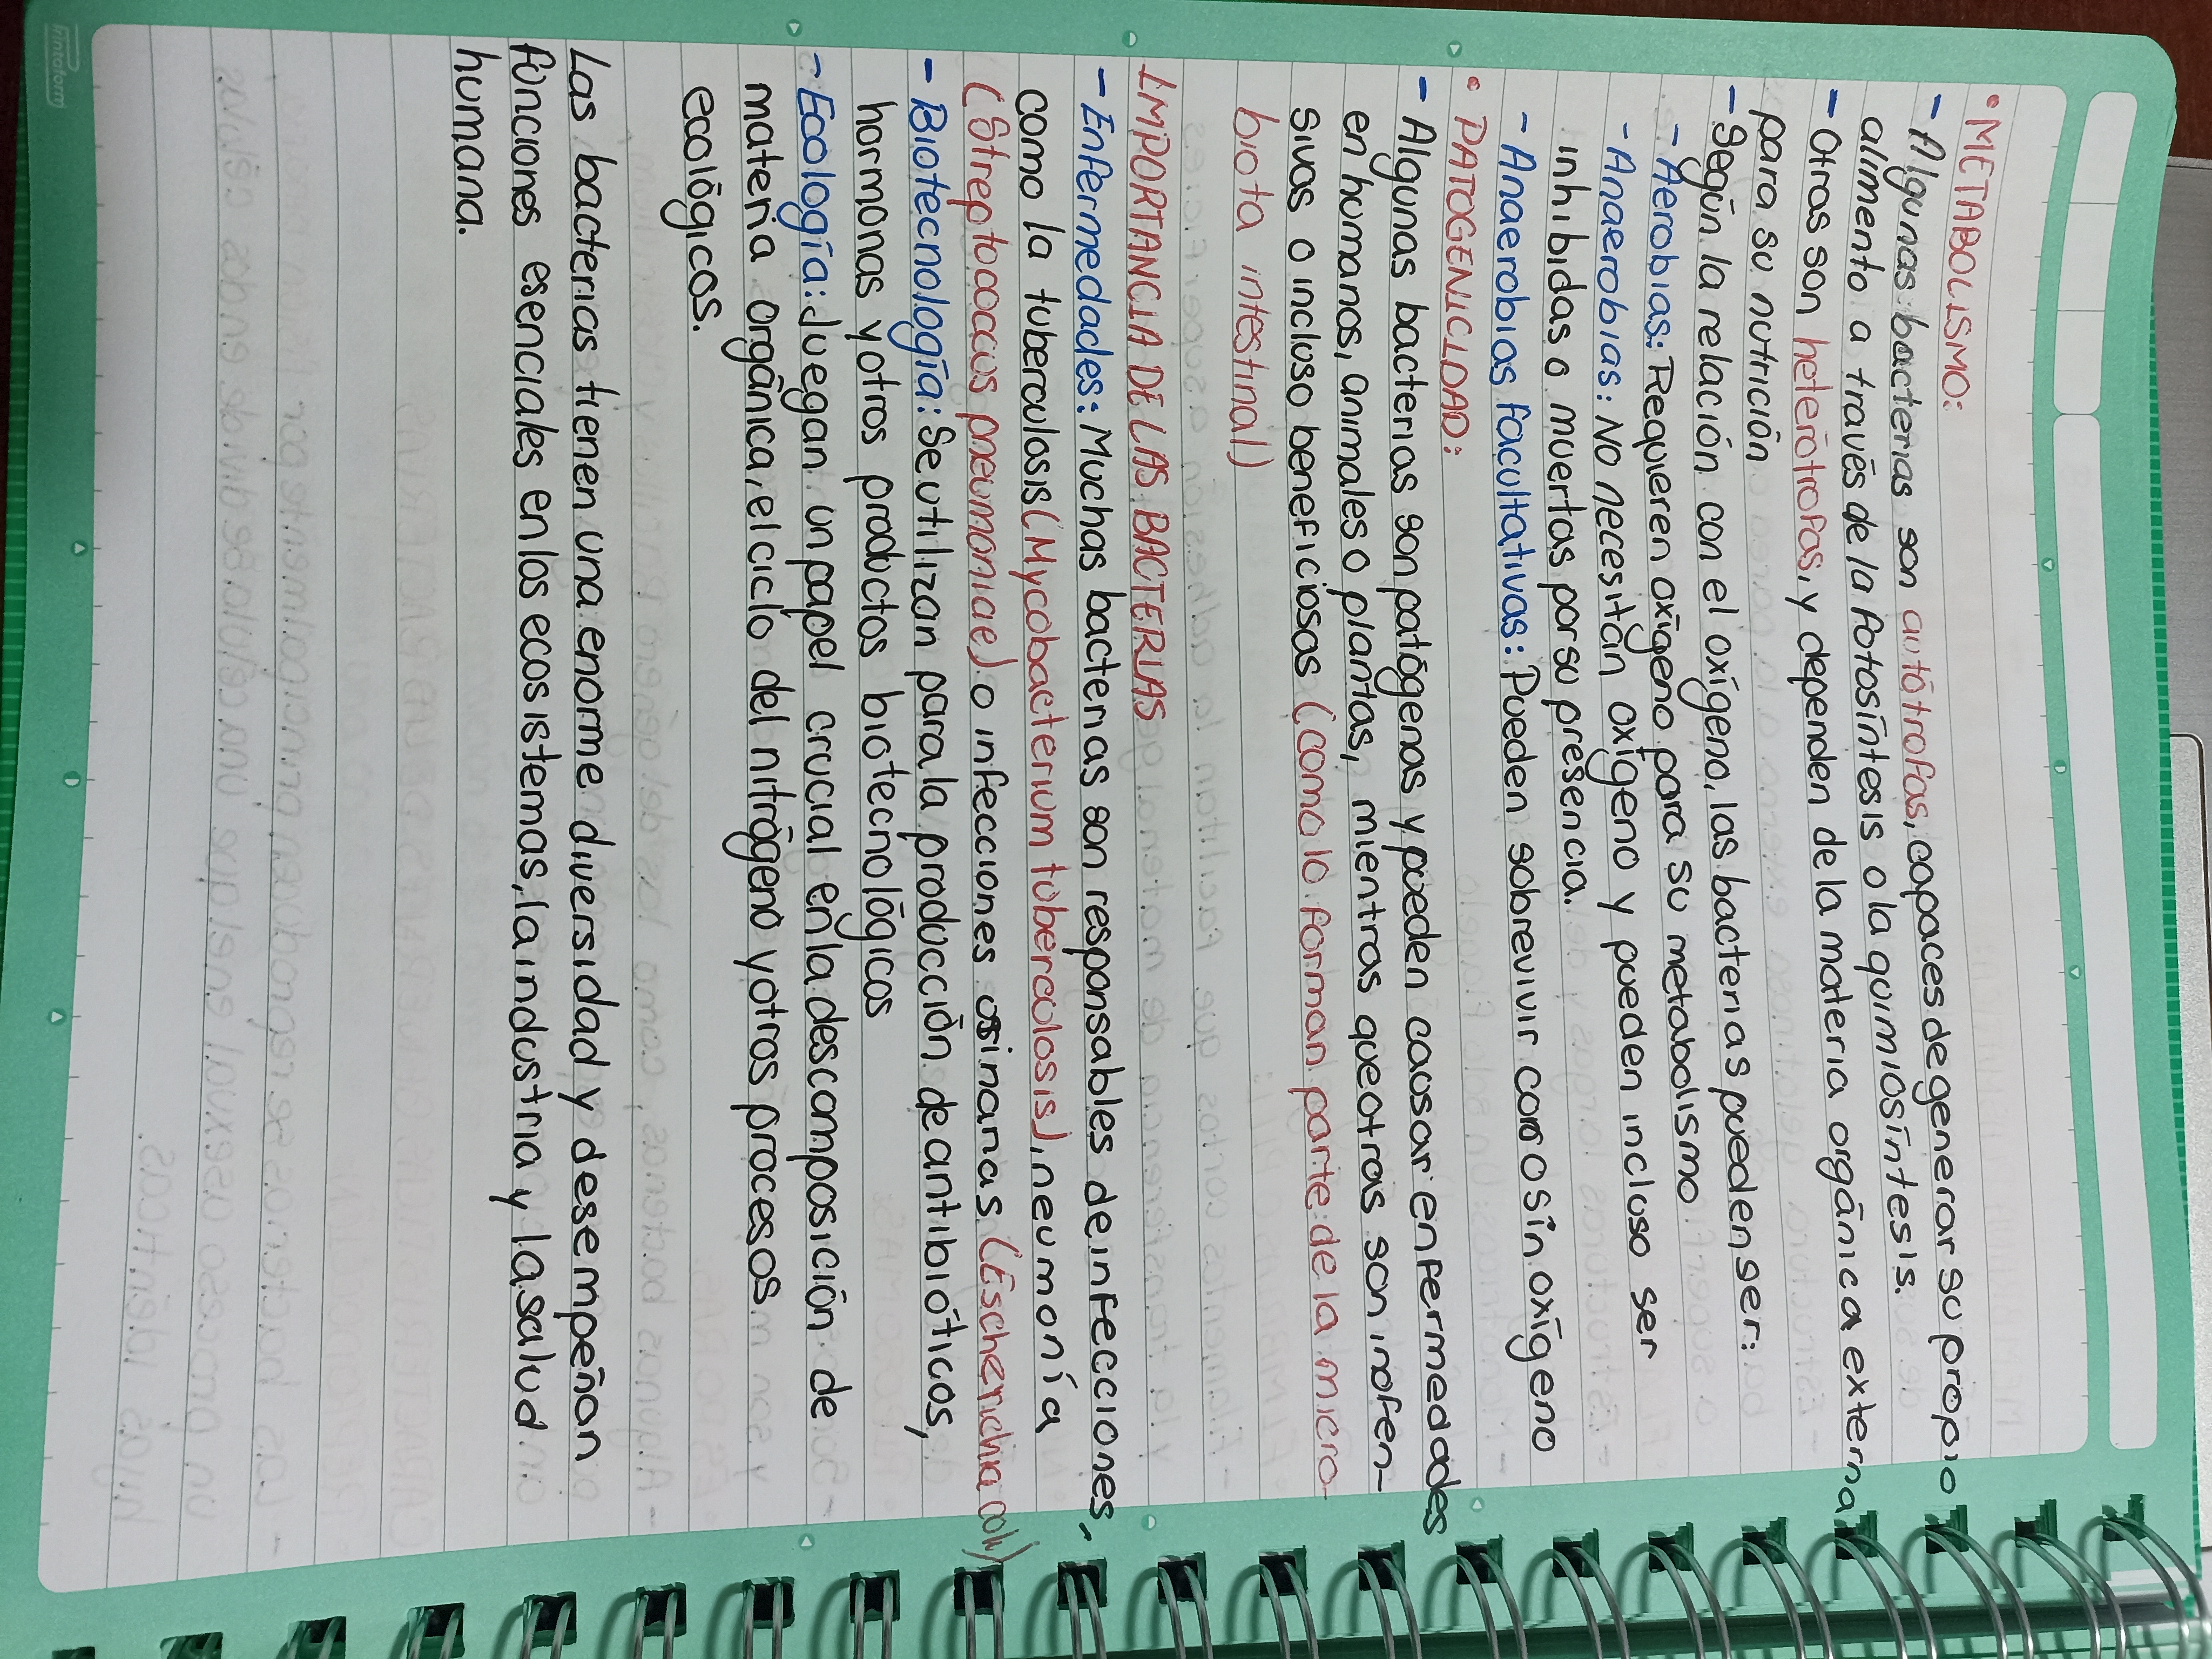 • METABOLISMO:
- Algunas bacterias son autótrofas, capaces de generar su propio
alimento a través de la fotosíntesis o la quimiosíntesis.
- Otras son heterótrofas, y dependen de la materia orgánica externa
para su nutrición
- Según la relación con el oxígeno, las bacterias pueden ser:
- Aerobias: Requieren oxígeno para su metabolismo
- Anaerobias: No necesitan oxígeno y pueden incluso ser
inhibidas o muertas por su presencia.
- Anaerobias facultativas: Pueden sobrevivir con o sin oxígeno
• PATOGENICIDAD:
- Algunas bacterias son patógenas y pueden causar enfermedades
en humanos, animales o plantas, mientras que otras son inofen-
sivas o incluso beneficiosas (como lo forman parte de la micro-
biota intestinal)
IMPORTANCIA DE LAS BACTERIAS
- Enfermedades: Muchas bacterias son responsables de infecciones,
como la tuberculosis (Mycobacterium tuberculosis), neumonía
(Streptococcus pneumoniae) o infecciones urinarias (Escherichia coli)
- Biotecnología: Se utilizan para la producción de antibióticos,
hormonas y otros productos biotecnológicos
- Ecología: Juegan un papel crucial en la descomposición de
materia orgánica, el ciclo del nitrógeno y otros procesos
ecológicos.
Las bacterias tienen una enorme diversidad y desempeñan
funciones esenciales en los ecosistemas, la industria y la salud
humana.
Printaform